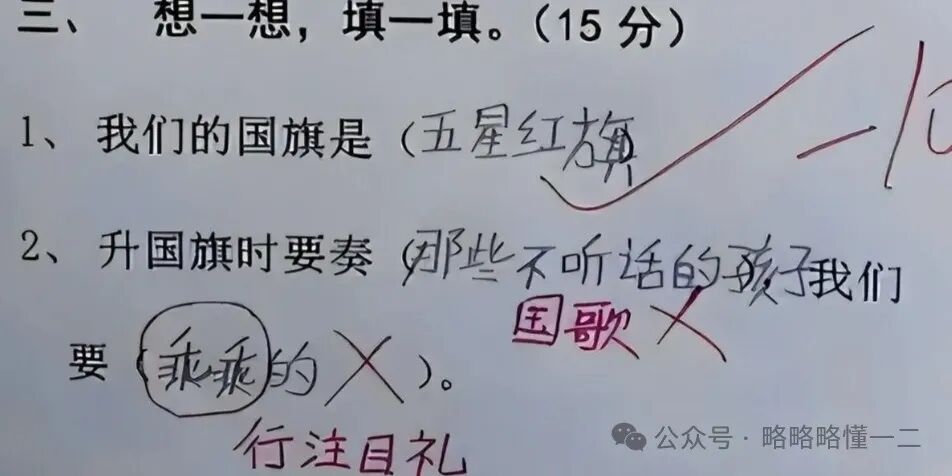 三、 想一想，填一填。（15 分）
1、我们的国旗是（五星红旗 -10
2、升国旗时要奏（那些不听话的孩子我们
国歌
要（乖乖的）。
行注目礼
公众号 · 略略略懂一二